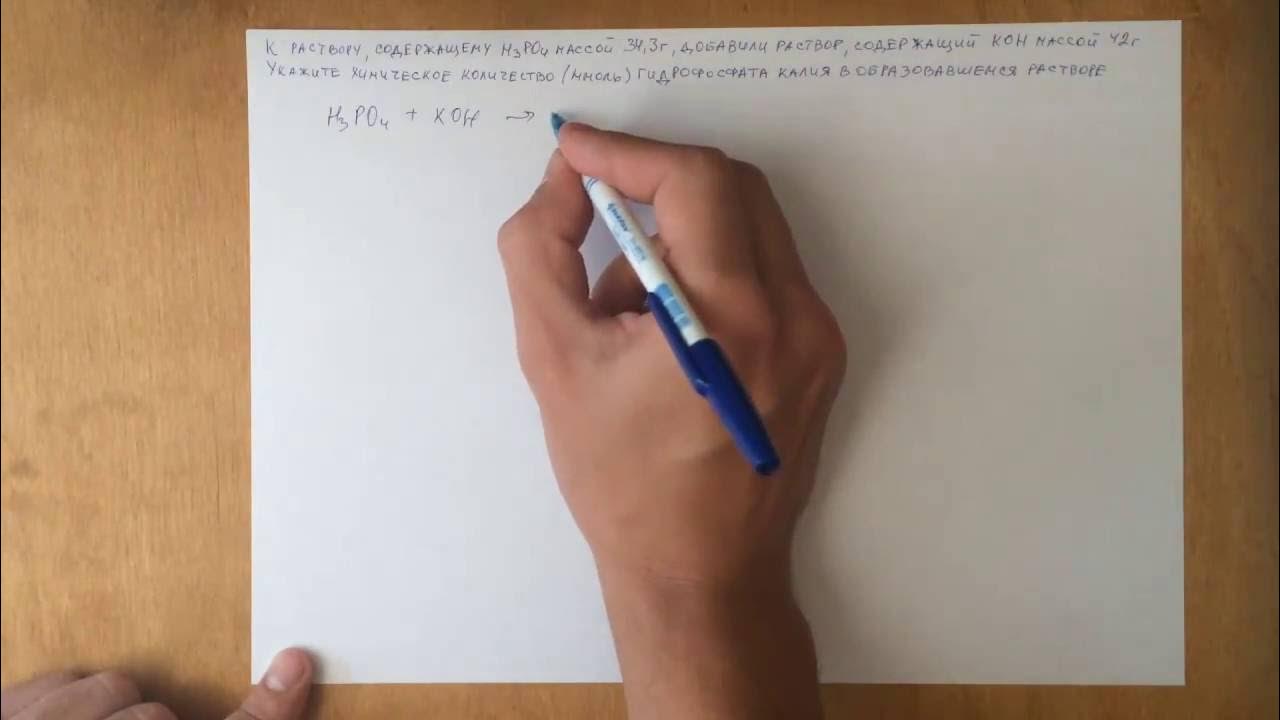 К РАСТВОРУ, СОДЕРЖАЩЕМУ H₃PO₄ МАССОЙ 34,3г, ДОБАВИЛИ РАСТВОР, СОДЕРЖАЩИЙ KOH МАССОЙ 42г
УКАЖИТЕ ХИМИЧЕСКОЕ КОЛИЧЕСТВО (ММОЛЬ) ГИДРОФОСФАТА КАЛИЯ В ОБРАЗОВАВШЕМСЯ РАСТВОРЕ
H₃PO₄ + KOH →